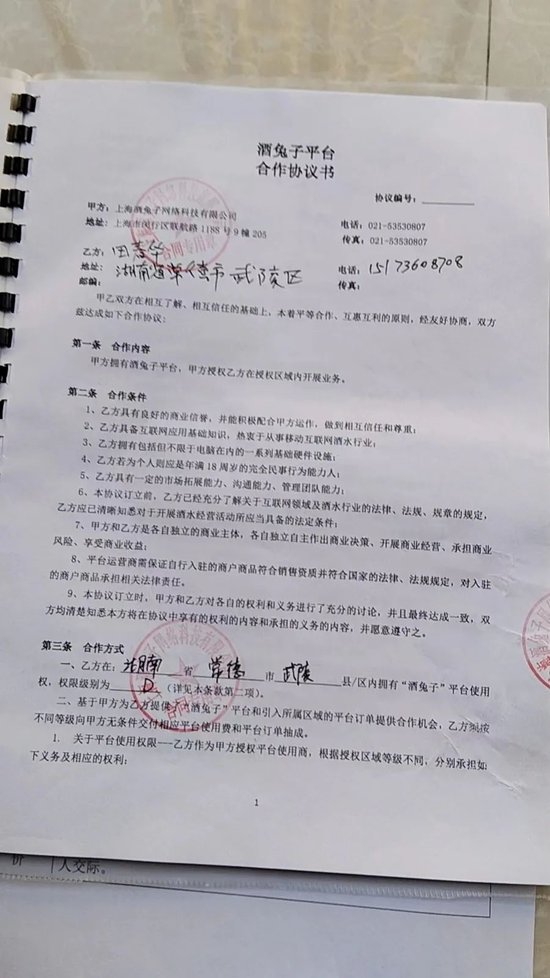 酒兔子平台
合作协议书
协议编号：
甲方：上海酒兔子网络科技有限公司 电话：021-53530807
地址：上海市闵行区联航路 1188 号 9 幢 205 传真：021-53530807
乙方：田 华
地址：湖南省常德市武陵区 电话：15173608708
邮编： 传真：
甲乙双方在相互了解、相互信任的基础上，本着平等合作、互惠互利的原则，经友好协商，双方
兹达成如下合作协议：
第一条 合作内容
甲方拥有酒兔子平台，甲方授权乙方在授权区域内开展业务。
第二条 合作条件
1、乙方具有良好的商业信誉，并能积极配合甲方运作，做到相互信任和尊重；
2、乙方具备互联网应用基础知识，热衷于从事移动互联网酒水行业；
3、乙方拥有包括但不限于电脑在内的一系列基础硬件设施；
4、乙方若为个人则应是年满 18 周岁的完全民事行为能力人；
5、乙方具有一定的市场拓展能力、沟通能力、管理团队能力；
6、本协议订立前，乙方已经充分了解关于互联网领域及酒水行业的法律、法规、规章的规定，
乙方应已清晰知悉对于开展酒水经营活动所应当具备的法定条件；
7、甲方和乙方是各自独立的商业主体，各自独立自主作出商业决策、开展商业经营、承担商业
风险、享受商业收益；
8、平台运营商需保证自行入驻的商户商品符合销售资质并符合国家的法律、法规规定，对入驻
的商户商品承担相关法律责任。
9、本协议订立时，甲方和乙方对各自的权利和义务进行了充分的讨论，并且最终达成一致，双
方均清楚知悉本方将在协议中享有的权利的内容和承担的义务的内容，并愿意遵守之。
第三条 合作方式
一、乙方在：湖南 省 常德 市 武陵 县/区内拥有“酒兔子”平台使用
权，权限级别为 D （详见本条款第二项）。
二、基于甲方为乙方提供“酒兔子”平台和引入所属区域的平台订单提供合作机会，乙方须按
不同等级向甲方无条件交付相应平台使用费和平台订单抽成。
1. 关于平台使用权限---乙方作为甲方授权平台使用商，根据授权区域等级不同，分别承担如
下义务及相应的权利：
1
人交际。
合同专用章